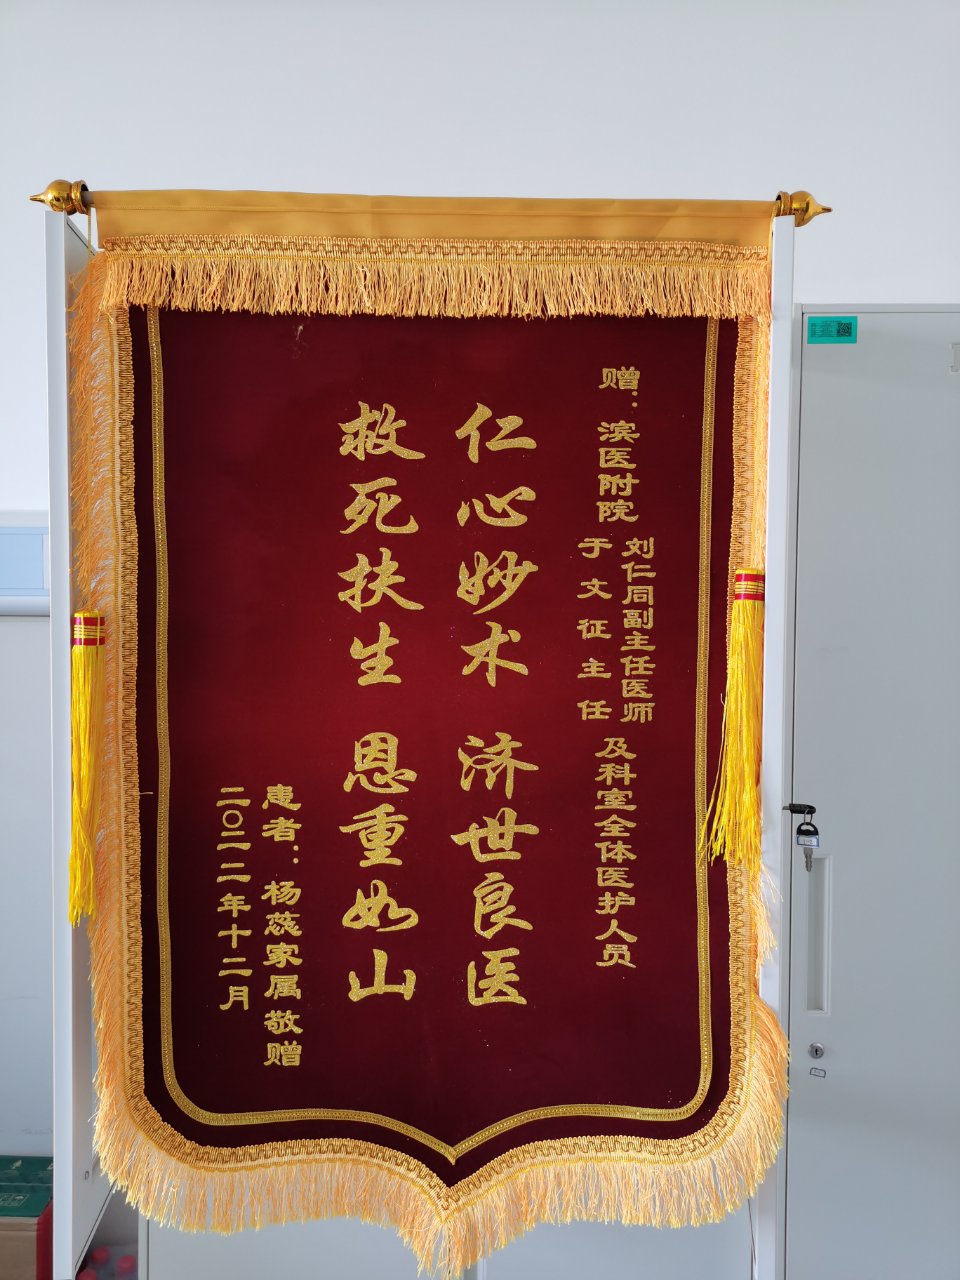 赠：滨医附院
刘仁同副主任医师
于文征主任
及科室全体医护人员
仁心妙术 济世良医
救死扶生 恩重如山
患者：杨蕊家属敬赠
二〇二二年十二月